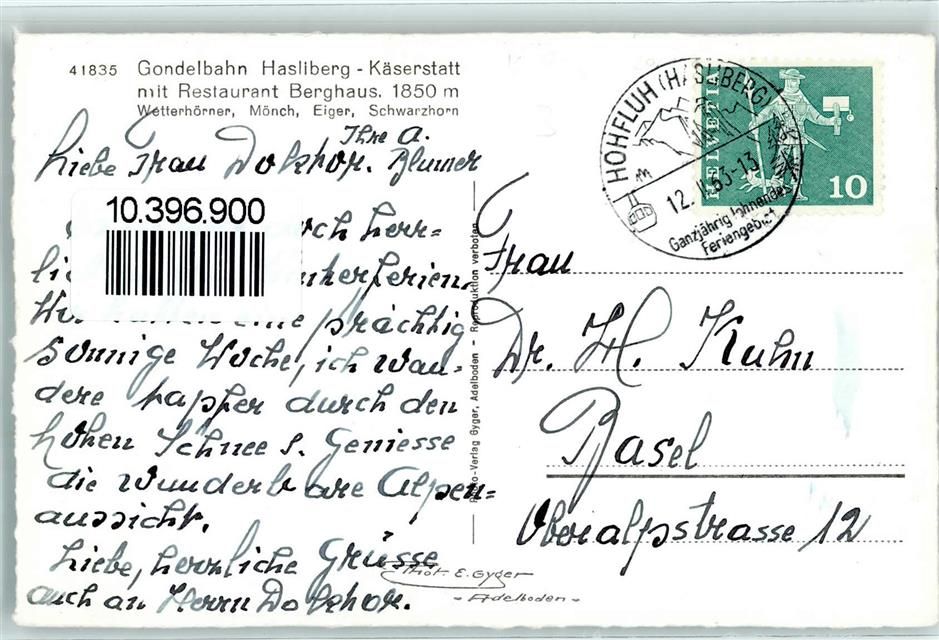 41835 Gondelbahn Hasliberg - Käserstatt
mit Restaurant Berghaus. 1850 m
Wetterhörner, Mönch, Eiger, Schwarzhorn
Ihre A. Blumer
Liebe Frau Doktor.
10.396.900
herr=
lic
Wir eine prächtig
sonnige Woche, ich wan=
dere tapfer durch den
hohen Schnee &. Geniesse
die wunderbare Alpen=
aussicht.
Liebe, herzliche Grüsse
auch an Herrn Doktor.
Photo-Verlag Gyger, Adelboden - Reproduktion verboten
Phot. E. Gyger
- Adelboden -
HOHFLUH (HASLIBERG)
12. 63-13
Ganzjährig lohnendes
Feriengebiet
HELVETIA
10
Frau
Dr. H. Kuhn
Basel
Oberalpstrasse 12